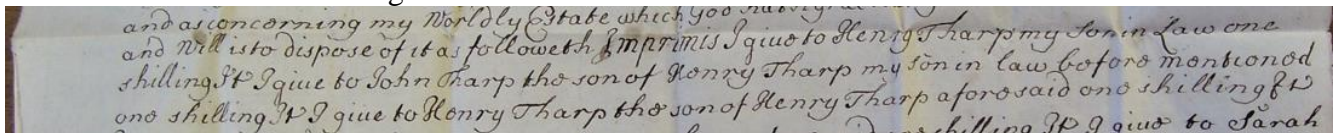 and as concerning my Worldly Estate which God hath
and Will is to dispose of it as followeth Imprimis I giue to Henry Tharp my Son in Law one
shilling It I giue to John Tharp the son of Henry Tharp my son in law before mentioned
one shilling It I giue to Henry Tharp the son of Henry Tharp aforesaid one shilling It
shilling It I giue to Sarah